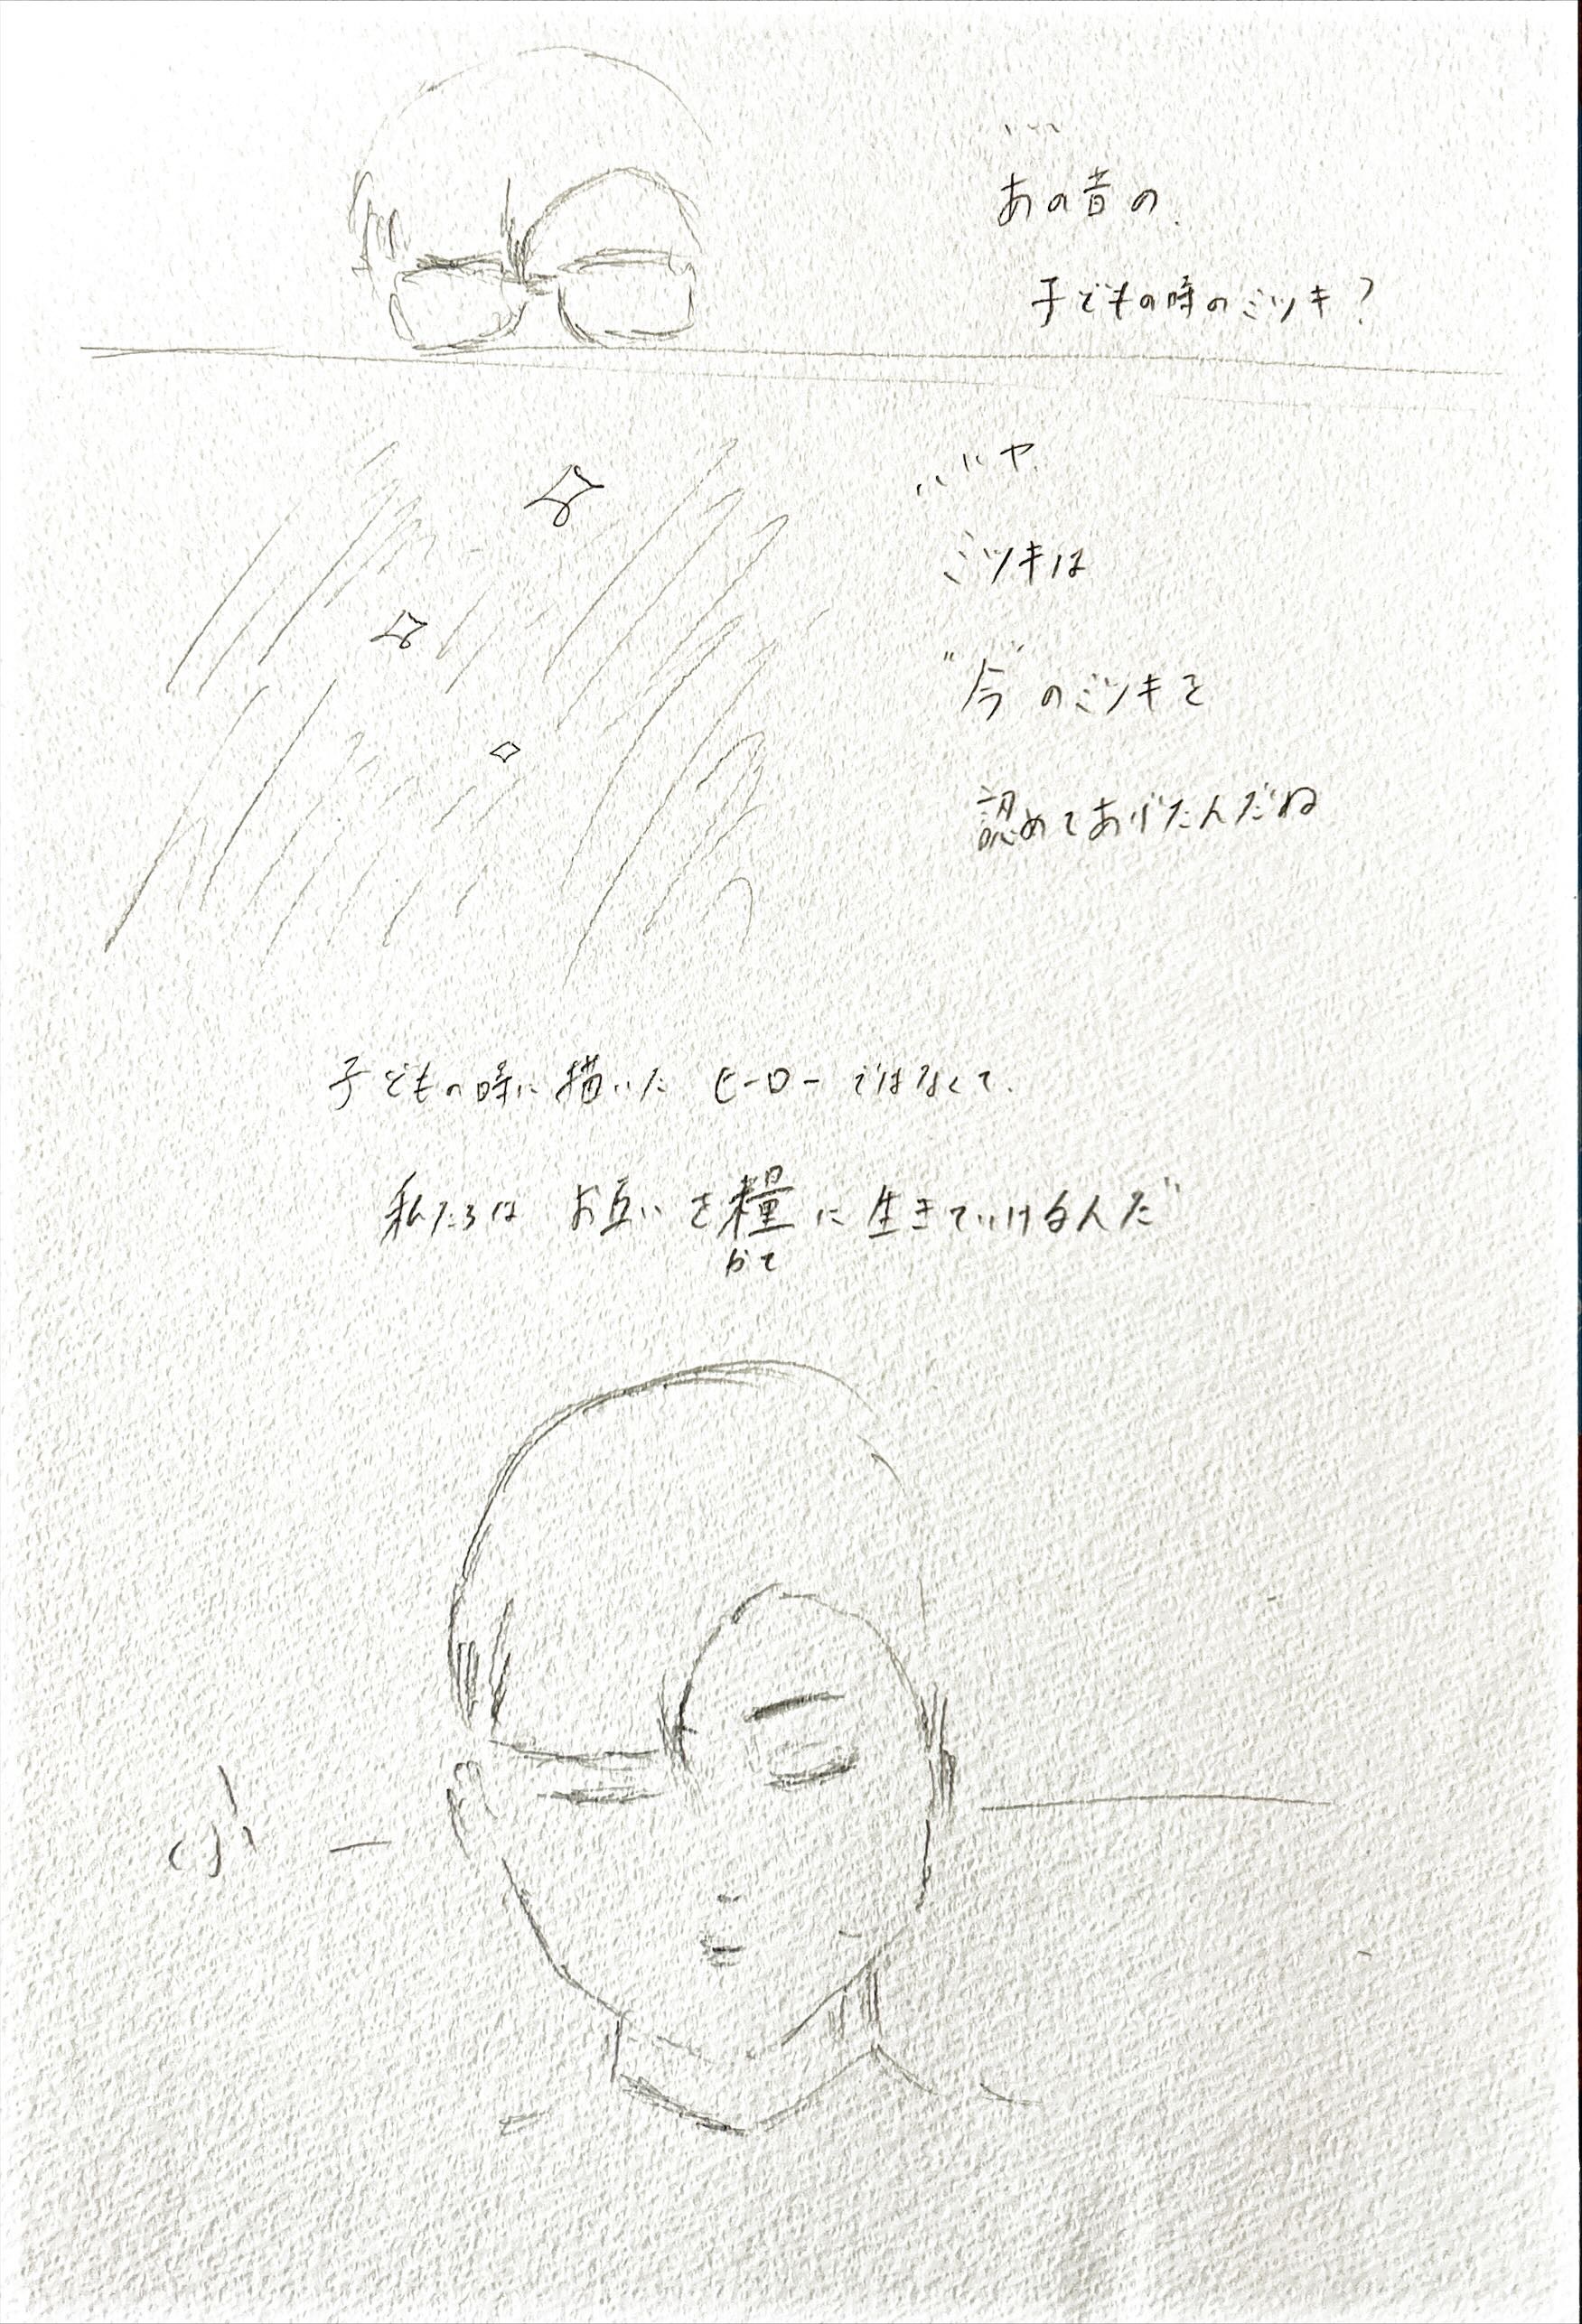 …
あの音の
子どもの時のミツキ？
…いや
ミツキは
"今"のミツキを
認めてあげたんだね
子どもの時に描いた ヒーローではなくて、
私たちは お互いを糧に生きていけるんだ
かて
ふー